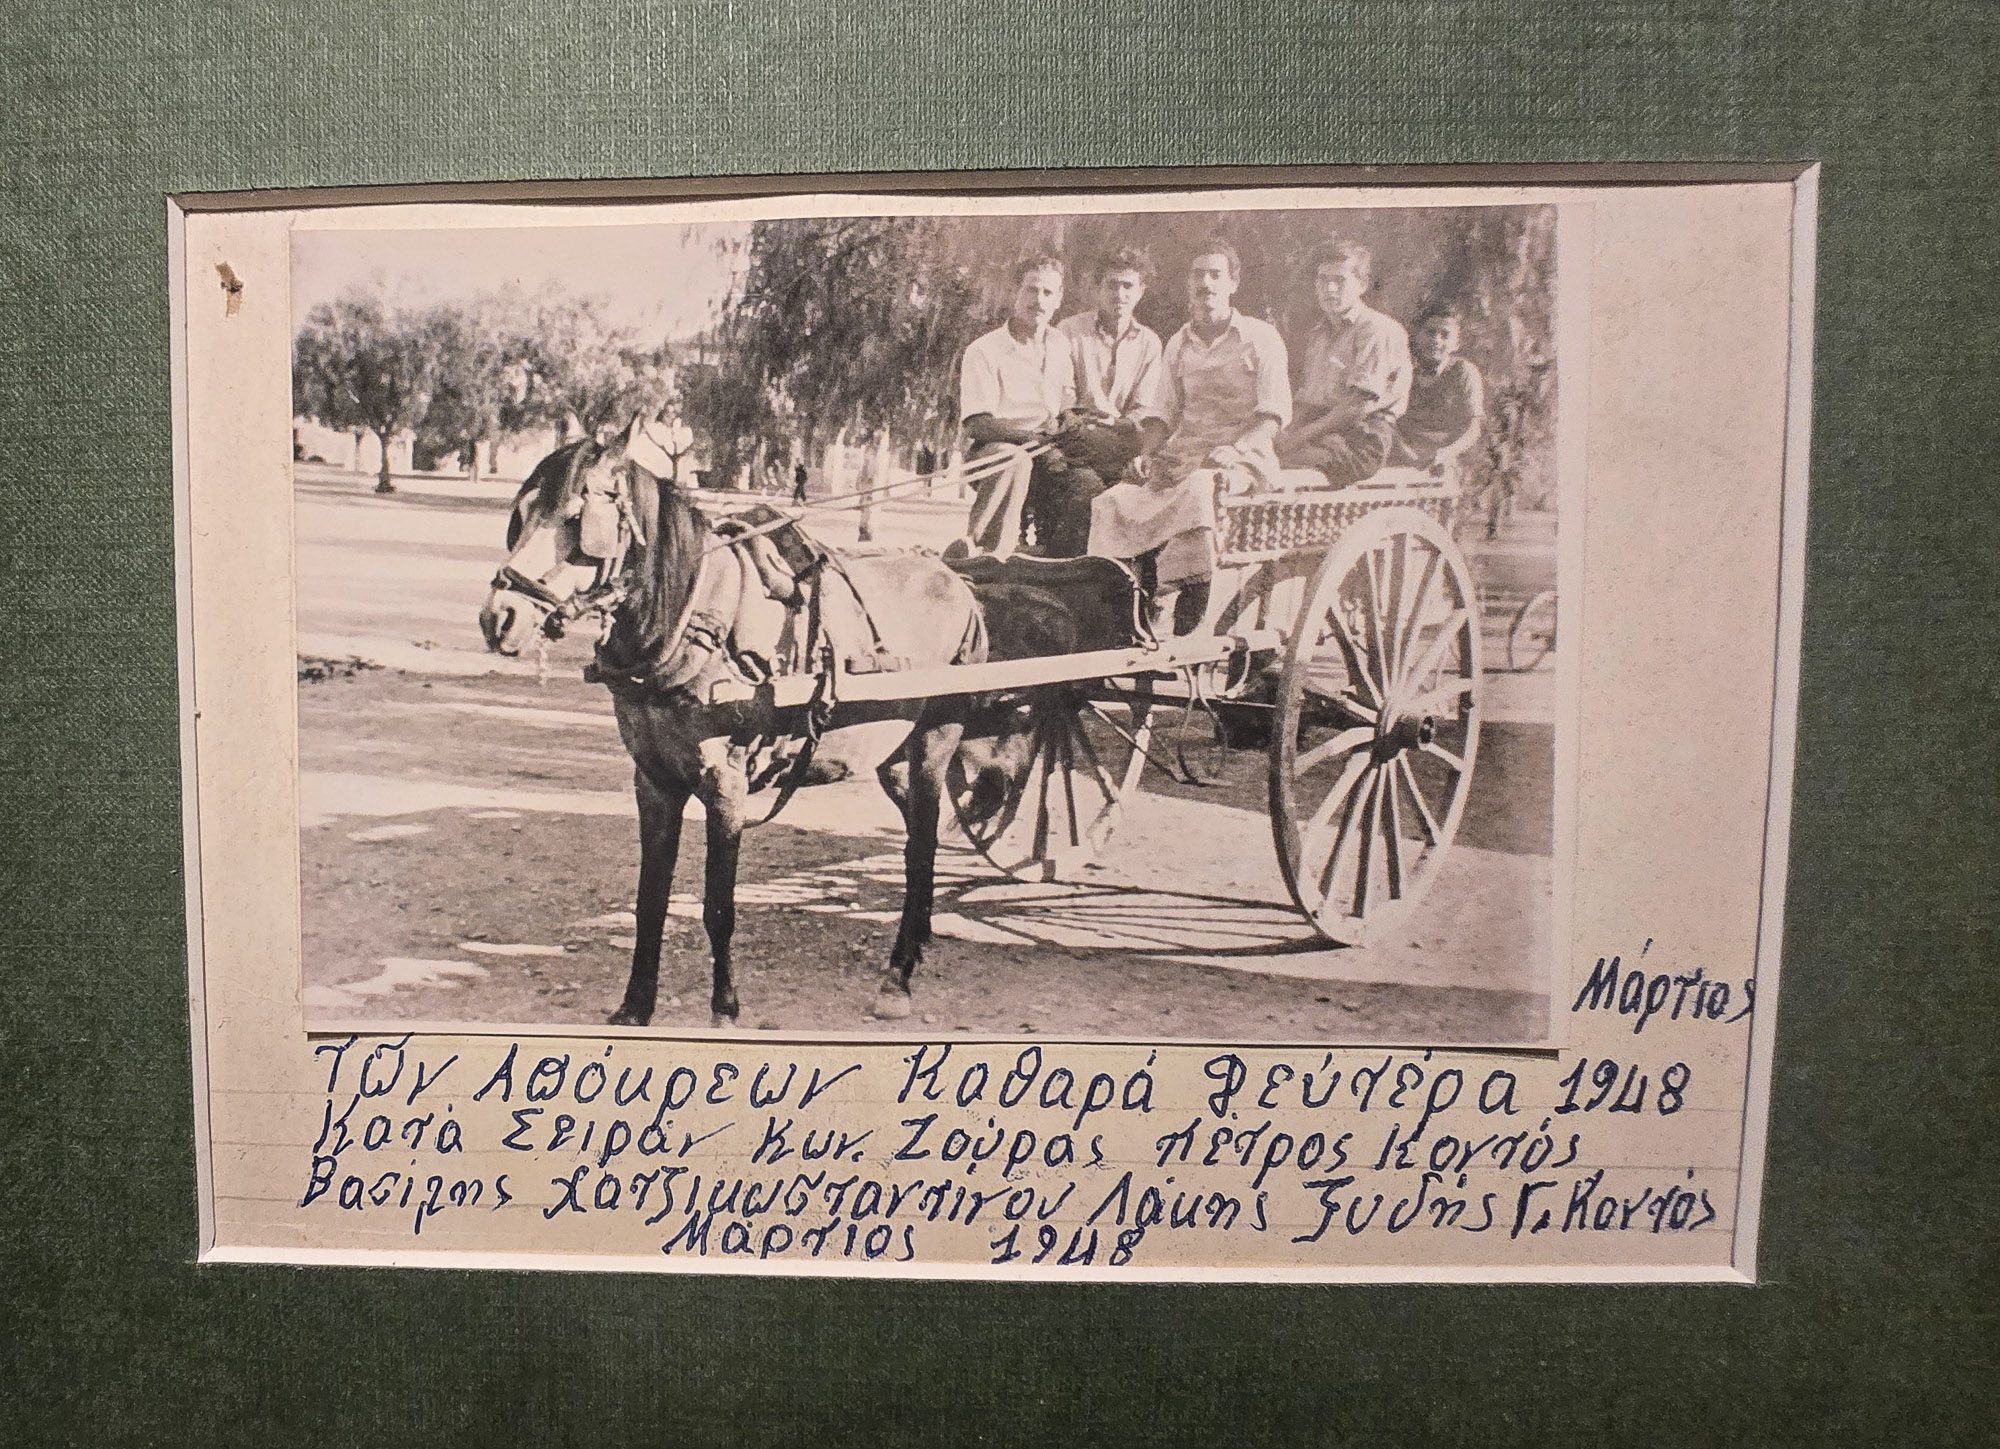 Μάρτιος
Τῶν Απόκρεων Καθαρά Δεύτέρα 1948
Κατά Σειράν Κων. Ζούρας Πέτρος Κοντός
Βασίλης Χατζικωσταντίνου Λάκης Ξυδής Γ. Κοντός
Μάρτιος 1948